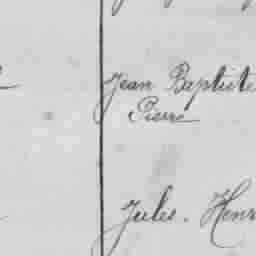 Jean Baptiste
Pierre
Jules. Henri